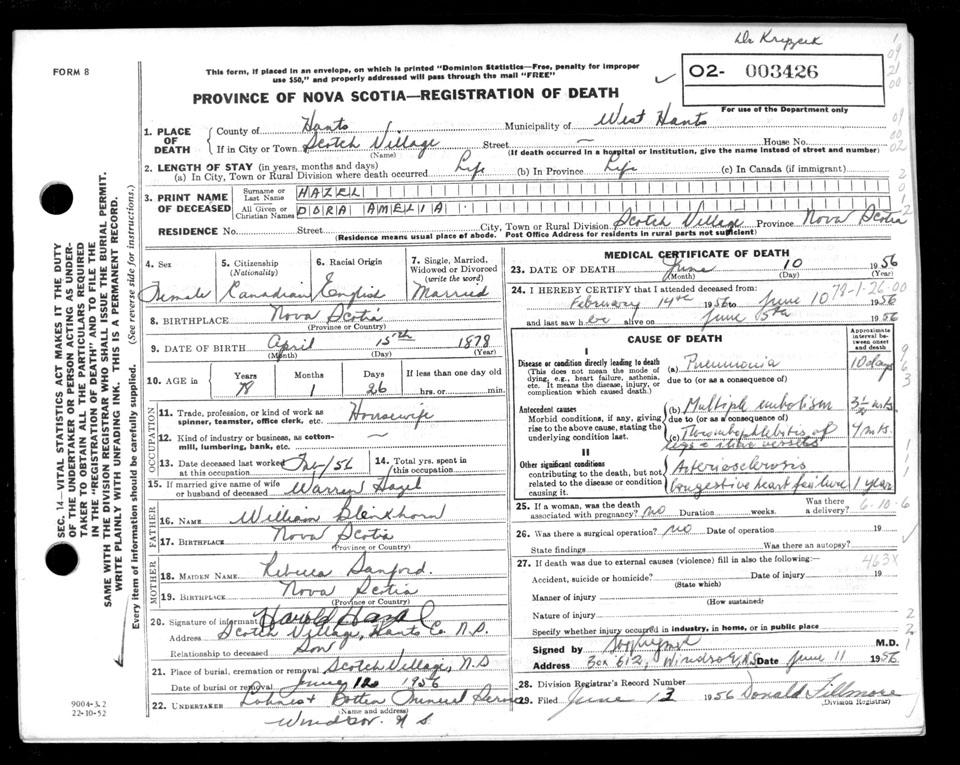 Dr Krizcek
FORM 8
This form, if placed in an envelope, on which is printed "Dominion Statistics—Free, penalty for improper
use $50," and properly addressed will pass through the mail "FREE"
O2- 003426
For use of the Department only
PROVINCE OF NOVA SCOTIA—REGISTRATION OF DEATH
1. PLACE OF DEATH
County of Hants Municipality of West Hants
If in City or Town Scotch Village Street — House No.
(Name) (If death occurred in a hospital or institution, give the name instead of street and number)
2. LENGTH OF STAY (in years, months and days)
(a) In City, Town or Rural Division where death occurred Life (b) In Province Life (c) In Canada (if immigrant)
3. PRINT NAME OF DECEASED
Surname or Last Name HAZEL
All Given or Christian Names DORA AMELIA
RESIDENCE No. Street City, Town or Rural Division Scotch Village Province Nova Scotia
(Residence means usual place of abode. Post Office Address for residents in rural parts not sufficient)
4. Sex Female
5. Citizenship (Nationality) Canadian
6. Racial Origin English
7. Single, Married, Widowed or Divorced (write the word) Married
8. BIRTHPLACE Nova Scotia
(Province or Country)
9. DATE OF BIRTH April 15th 1878
(Month) (Day) (Year)
10. AGE in Years Months Days If less than one day old
78 1 26 hrs. or min.
OCCUPATION
11. Trade, profession, or kind of work as spinner, teamster, office clerk, etc. Housewife
12. Kind of industry or business, as cotton-mill, lumbering, bank, etc. —
13. Date deceased last worked at this occupation /56
14. Total yrs. spent in this occupation
15. If married give name of wife or husband of deceased Warren Hazel
FATHER
16. Name William Blenkhorn
17. Birthplace Nova Scotia
(Province or Country)
MOTHER
18. Maiden Name Rebecca Sanford.
19. Birthplace Nova Scotia
(Province or Country)
20. Signature of informant Harold Hazel
Address Scotch Village, Hants Co. N.S.
Relationship to deceased Son
21. Place of burial, cremation or removal Scotch Village, N.S
Date of burial or removal June 12 1956
22. UNDERTAKER Lohnes + Botten Funeral Service
(Name and address)
Windsor. N S.
MEDICAL CERTIFICATE OF DEATH
23. DATE OF DEATH June 10 1956
(Month) (Day) (Year)
24. I HEREBY CERTIFY that I attended deceased from:
78-1-26-00
February 14th 1956 to June 10 1956
and last saw her alive on June 5th 1956
CAUSE OF DEATH
Approximate interval between onset and death
I
Disease or condition directly leading to death
(This does not mean the mode of dying, e.g., heart failure, asthenia, etc. It means the disease, injury, or complication which caused death.)
(a) Pneumonia 10 days
due to (or as a consequence of)
Antecedent causes
Morbid conditions, if any, giving rise to the above cause, stating the underlying condition last.
(b) Multiple embolism 3½ mts
due to (or as a consequence of)
(c) Thrombophlebitis of 4 mts.
legs + iliac vessels
II
Other significant conditions
contributing to the death, but not related to the disease or condition causing it.
Arteriosclerosis
Congestive heart failure 1 year
25. If a woman, was the death associated with pregnancy? no Duration weeks. Was there a delivery?
6-10-6
26. Was there a surgical operation? no Date of operation 19
State findings Was there an autopsy?
27. If death was due to external causes (violence) fill in also the following:—
463X
Accident, suicide or homicide? Date of injury 19
(State which)
Manner of injury
(How sustained)
Nature of injury
Specify whether injury occurred in industry, in home, or in public place
Signed by M.D.
Address Box 612, Windsor, N.S. Date June 11 1956
28. Division Registrar's Record Number
29. Filed June 13 1956 Donald Fillmore
(Division Registrar)
SEC. 14—VITAL STATISTICS ACT MAKES IT THE DUTY
OF THE UNDERTAKER OR PERSON ACTING AS UNDER-
TAKER TO OBTAIN ALL THE PARTICULARS REQUIRED
IN THE "REGISTRATION OF DEATH" AND TO FILE THE
SAME WITH THE DIVISION REGISTRAR WHO SHALL ISSUE THE BURIAL PERMIT.
WRITE PLAINLY WITH UNFADING INK. THIS IS A PERMANENT RECORD.
Every item of information should be carefully supplied. (See reverse side for instructions.)
9004-3.2
22-10-52